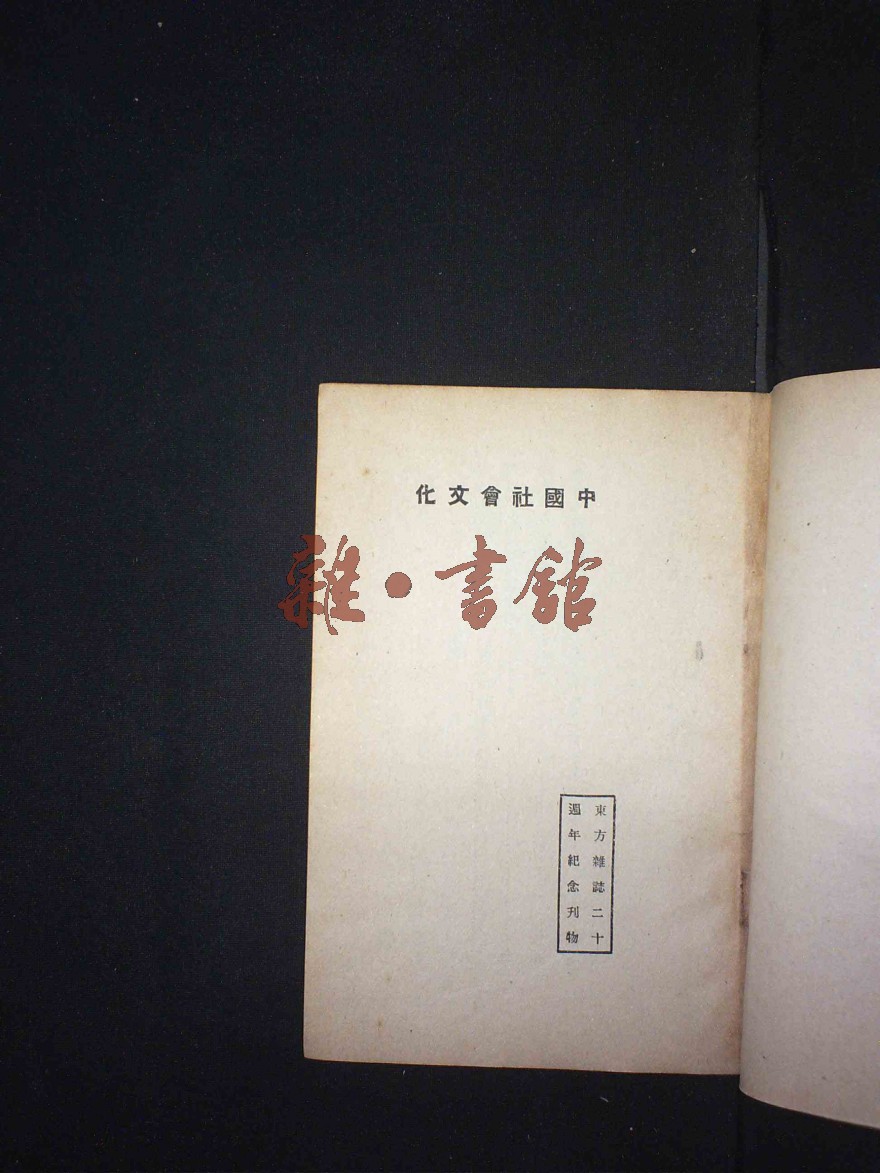 中國社會文化
雜·書館
東方雜誌二十
週年紀念刊物